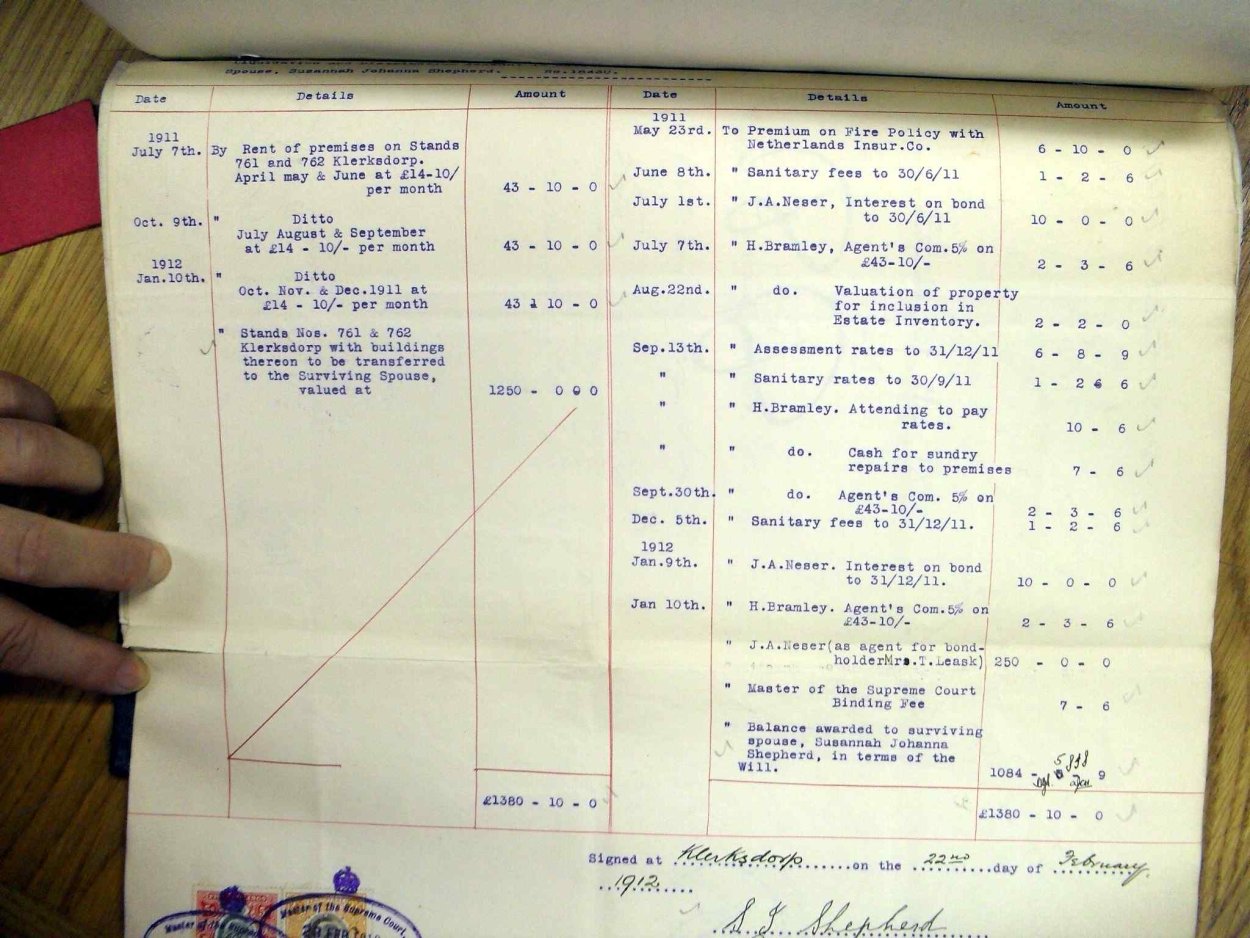 Spouse, Susannah Johanna Shepherd. No.18430.
Date Details Amount Date Details Amount
1911
July 7th. By Rent of premises on Stands
761 and 762 Klerksdorp.
April may & June at £14-10/
per month 43 - 10 - 0
Oct. 9th. " Ditto
July August & September
at £14 - 10/- per month 43 - 10 - 0
1912
Jan.10th. " Ditto
Oct. Nov. & Dec.1911 at
£14 - 10/- per month 43 - 10 - 0
" Stands Nos. 761 & 762
Klerksdorp with buildings
thereon to be transferred
to the Surviving Spouse,
valued at 1250 - 0 0 0
£1380 - 10 - 0
1911
May 23rd. To Premium on Fire Policy with
Netherlands Insur.Co. 6 - 10 - 0
June 8th. " Sanitary fees to 30/6/11 1 - 2 - 6
July 1st. " J.A.Neser, Interest on bond
to 30/6/11 10 - 0 - 0
July 7th. " H.Bramley, Agent's Com.5% on
£43-10/- 2 - 3 - 6
Aug.22nd. " do. Valuation of property
for inclusion in
Estate Inventory. 2 - 2 - 0
Sep.13th. " Assessment rates to 31/12/11 6 - 8 - 9
" " Sanitary rates to 30/9/11 1 - 2 - 6
" " H.Bramley. Attending to pay
rates. 10 - 6
" " do. Cash for sundry
repairs to premises 7 - 6
Sept.30th. " do. Agent's Com. 5% on
£43-10/- 2 - 3 - 6
Dec. 5th. " Sanitary fees to 31/12/11. 1 - 2 - 6
1912
Jan.9th. " J.A.Neser. Interest on bond
to 31/12/11. 10 - 0 - 0
Jan 10th. " H.Bramley. Agent's Com.5% on
£43-10/- 2 - 3 - 6
" J.A.Neser(as agent for bond-
holderMrs.T.Leask) 250 - 0 - 0
" Master of the Supreme Court
Binding Fee 7 - 6
" Balance awarded to surviving
spouse, Susannah Johanna
Shepherd, in terms of the
Will. 1084 - 9
£1380 - 10 - 0
Signed at Klerksdorp on the 22nd day of February
1912
S J Shepherd
Master of the Supreme Court.